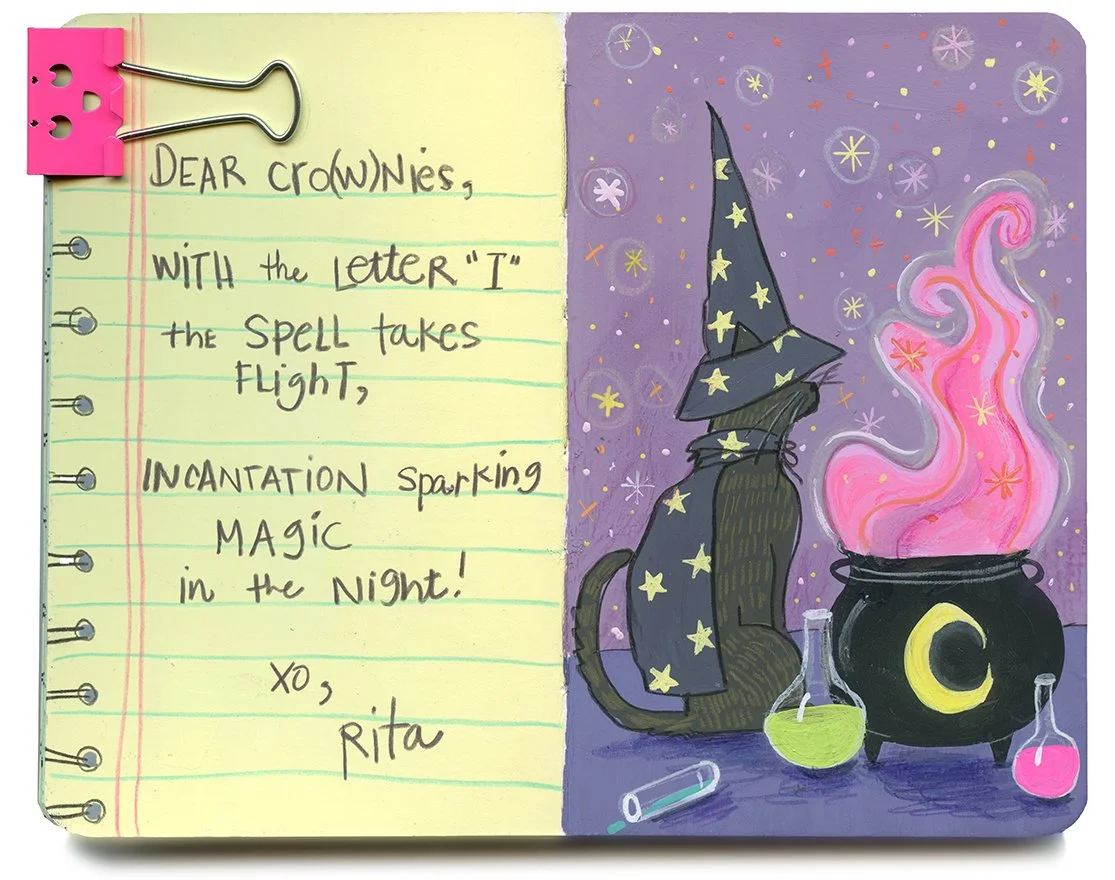 DEAR Cro(w)Nies,
WiTH the LeTTER "I"
the SPELL takes
FLighT,
INCANTATION Sparking
MAgiC
in the Night!
XO,
Rita